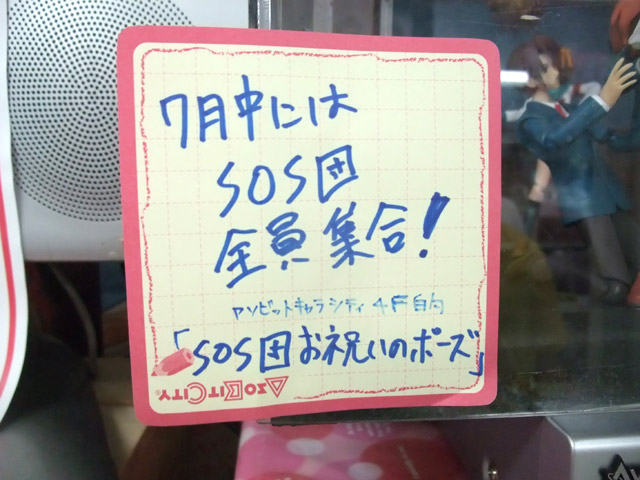 7月中には
SOS団
全員集合!
アソビットキャラシティ 4F
「SOS団お祝いのポーズ」
AsoBitCity